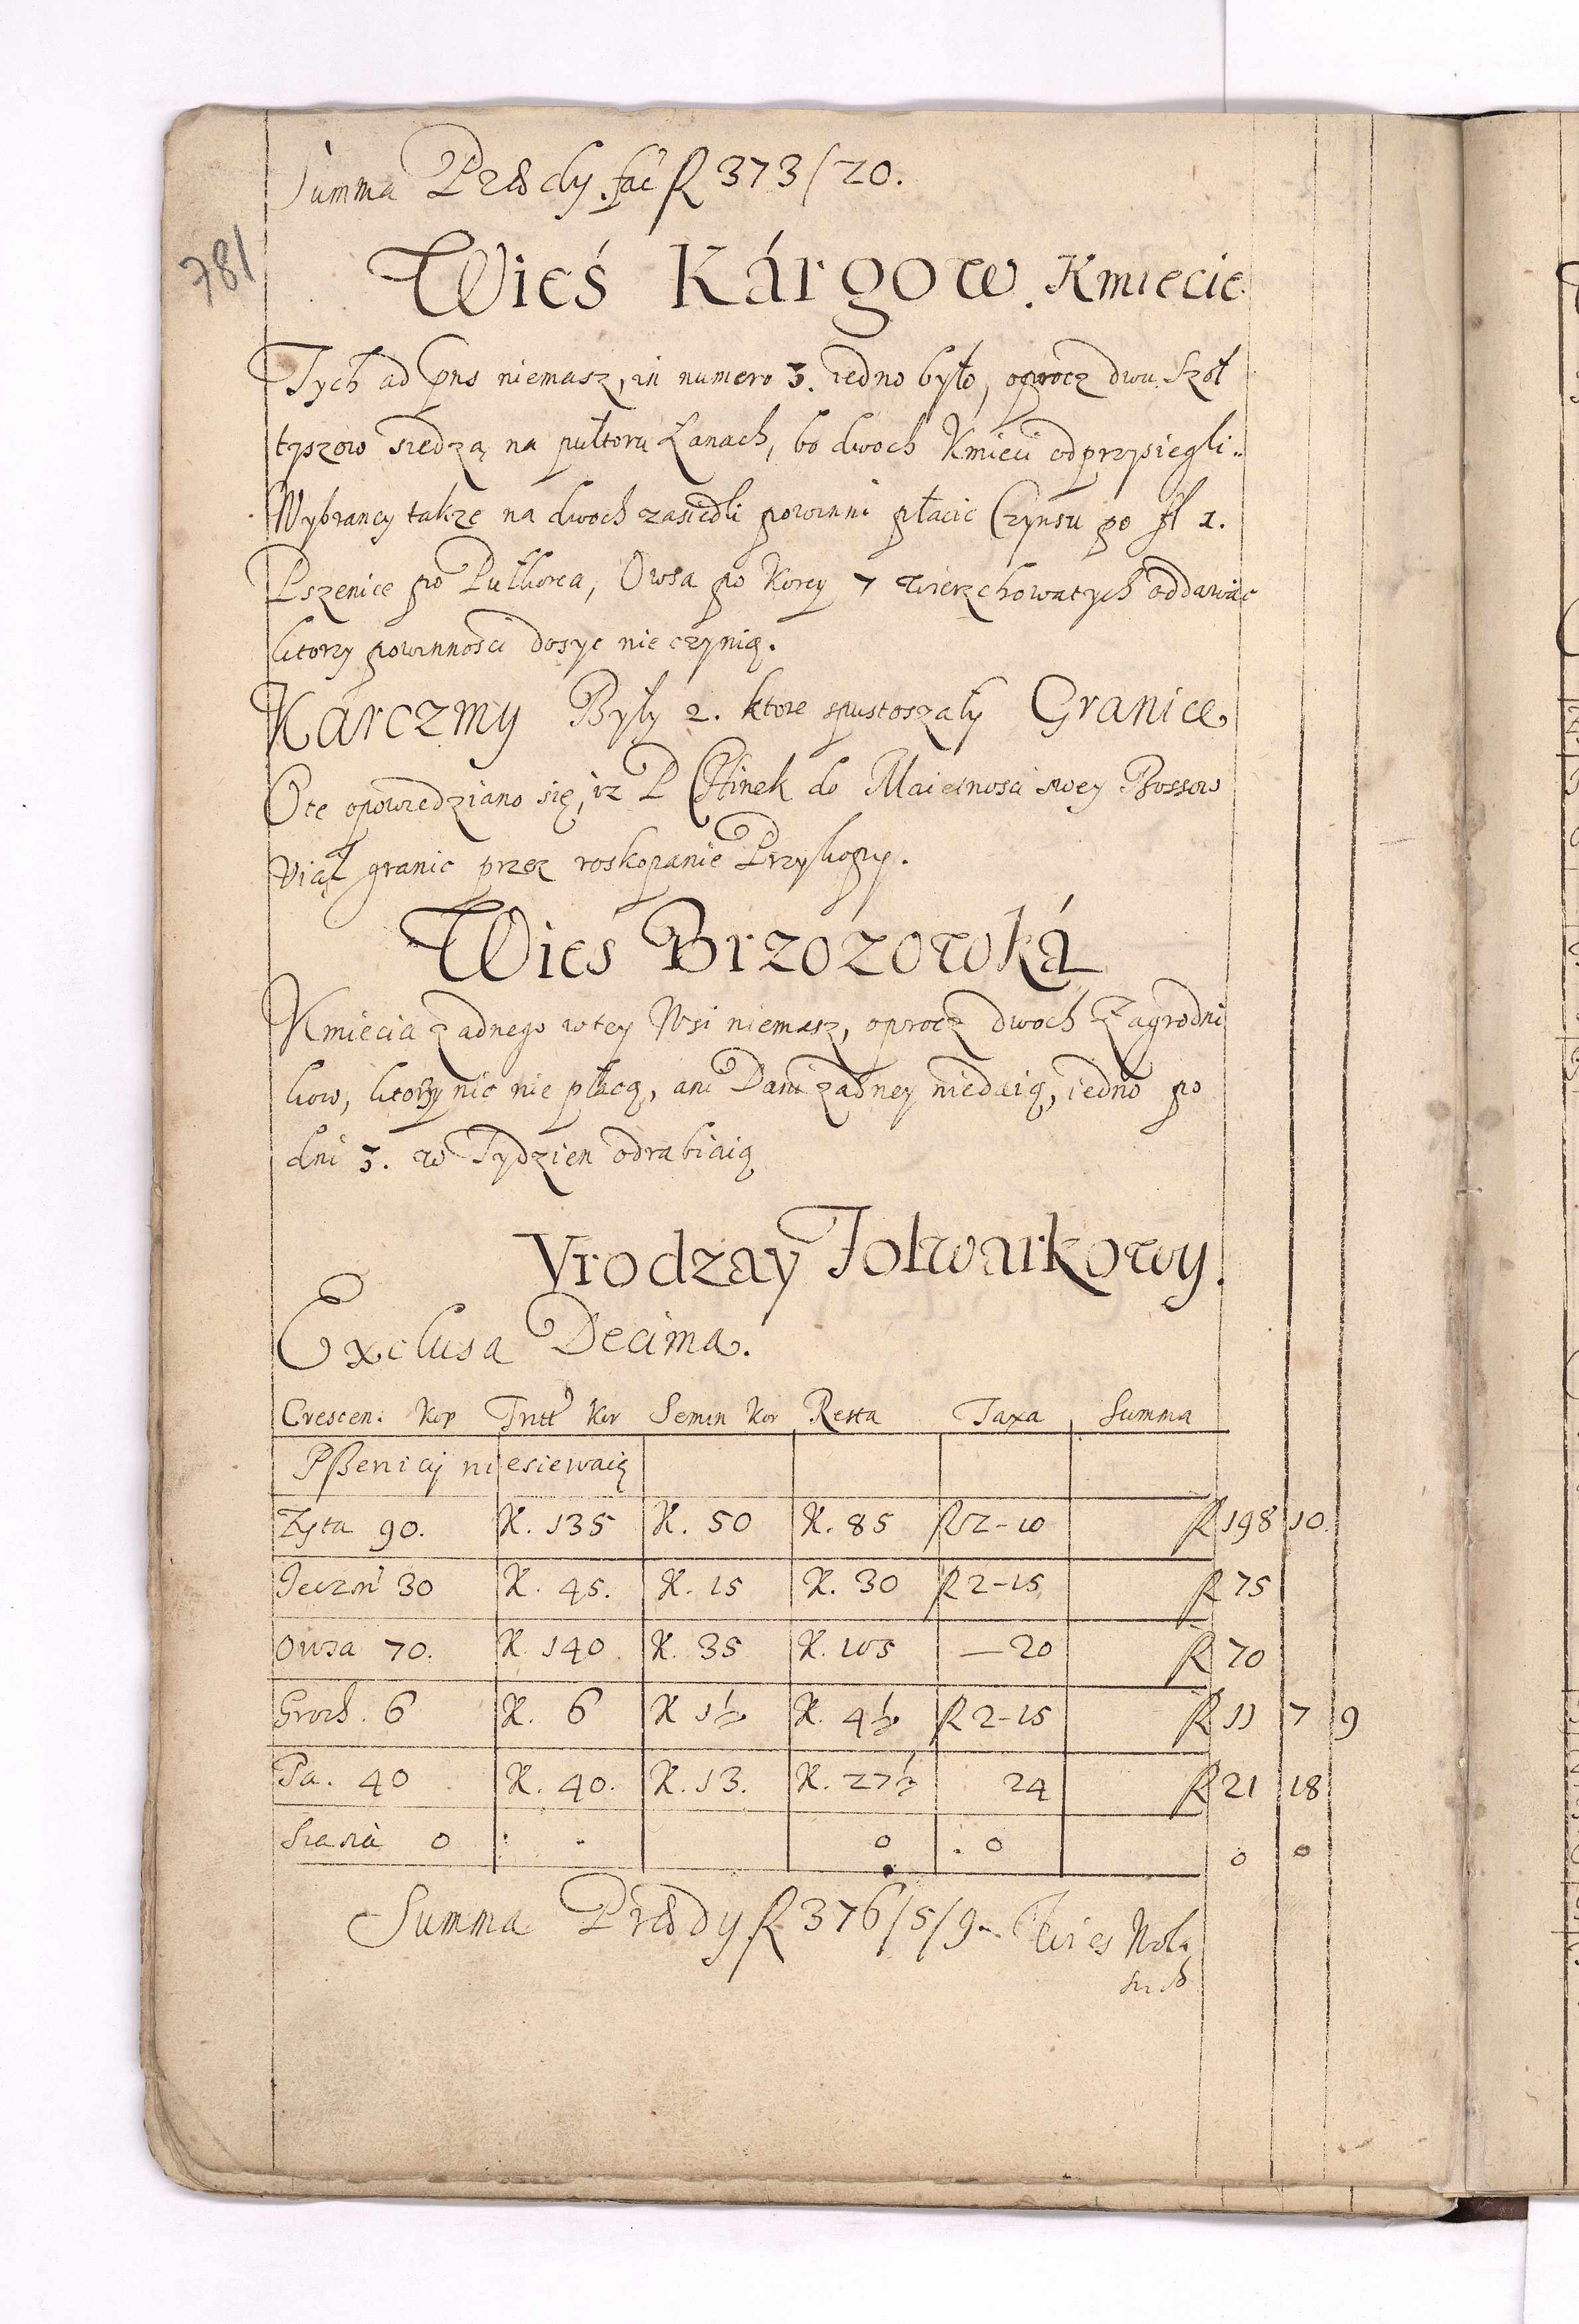 Summa Prẟdy. fac fl 373/20.
781
Wieś Kárgow. Kmiecie
Tych ad pns niemasz, in numero 3. iedno było, oprocz dwu Szoł
tyszow siedzą na pułtoru Łanach, bo dwoch Kmieci odprzysiegli..
Wybrancy także na dwoch zasiedli powinni płacic Czynsu po fl 1.
Pszenice po Pułkorca, Owsa po Korcy 7 wierzchowatych oddawac
ktorzy powinnosci dosyc nie czynią.
Karczmy Były 2. ktore spustoszały Granice
Ote opowiedziano się, iz P do Maietnosci swey Bossow
Viął granic przez roskopanie Przykopy.
Wieś Brzozowká
Kmiecia żadnego wtey Wsi niemasz, oprocz dwoch Zagrodni
kow, ktorzy nic nie płacą, ani Dani żadney niedaią, iedno po
dni 3. w Tydzien odrabiaią
Vrodzay Folwarkowy.
Exclusa Decima.
Crescen: Kop Tritt Kor Semin Kor Resta Taxa Summa
Pßenicy niesiewaią
Zyta 90. K. 135 K. 50 K. 85 fl 2-10 fl 198 10.
Jeczm 30 K. 45. K. 15 K. 30 fl 2-15 fl 75
Owsa 70. K. 140 K. 35 K. 105 —20 fl 70
Groch. 6 K. 6 K 1½ K. 4½ fl 2-15 fl 11 7 9
Ta. 40 K. 40. K. 13. K. 27½ 24 fl 21 18
Siana 0 . . 0 . 0 0 0
Summa Prẟdy fl 376/5/9. Wies Wola